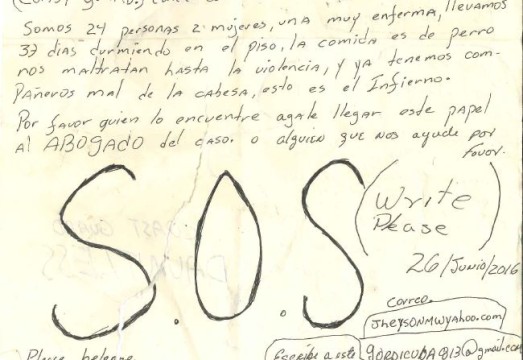 Somos 24 personas 2 mujeres, una muy enferma, llevamos
37 dias durmiendo en el piso, la comida es de perro
nos maltratan hasta la violencia, y ya tenemos com-
pañeros mal de la cabesa, esto es el Infierno.
Por favor quien lo encuentre agale llegar este papel
al ABOGADO del caso. o alguien que nos ayude por
favor.
S.O.S
(Write
Please
26/Junio/2016
correo.
JheysonMWyahoo.com
Please helpane
Escribe a este
gordicuba913@gmail.com